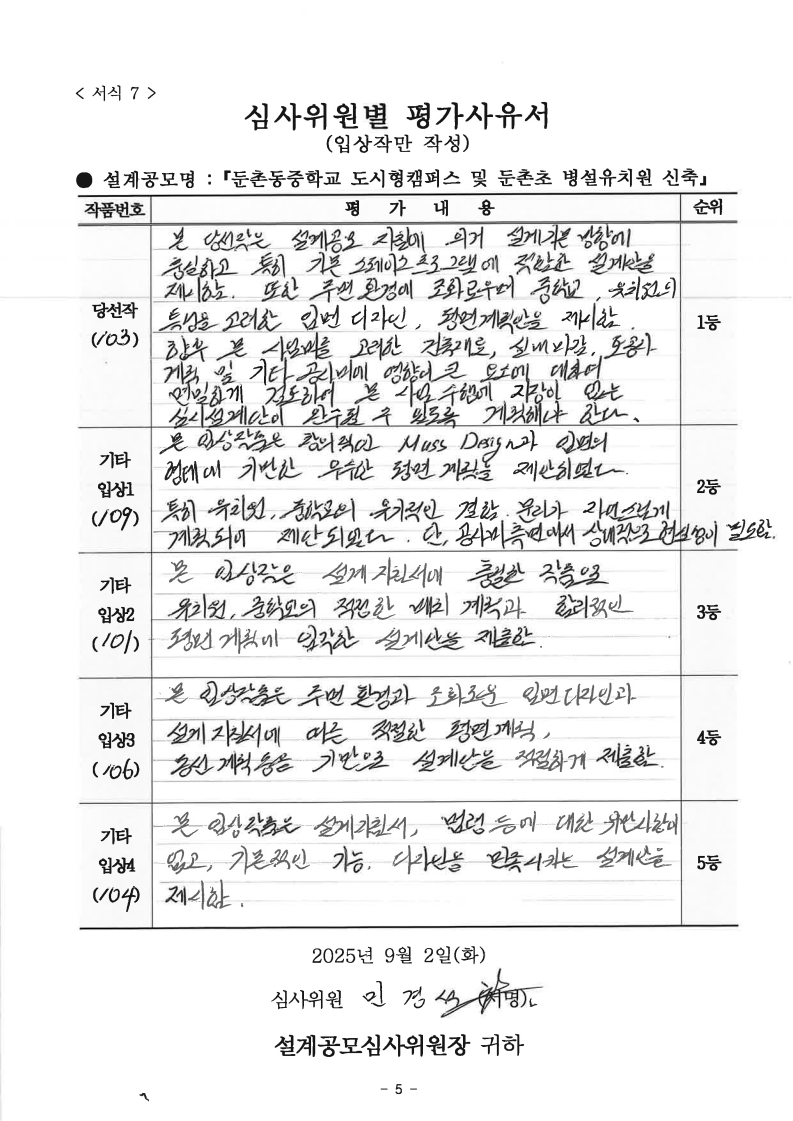 < 서식 7 >
심사위원별 평가사유서
(입상작만 작성)
● 설계공모명 : 『둔촌동중학교 도시형캠퍼스 및 둔촌초 병설유치원 신축』
작품번호 평 가 내 용 순위
당선작
(103)
본 당선작은 설계공모 지침에 의거 설계기본 방향에
충실하고 특히 기본 스페이스프로그램에 적합한 설계안을
제시함. 또한 주변 환경에 조화로우며 중학교, 유치원의
특성을 고려한 입면 디자인, 평면계획안을 제시함.
향후 본 사업비를 고려한 건축재료, 실내마감, 토공사
계획 및 기타 공사비에 영향이 큰 요소에 대하여
면밀하게 검토하여 본 사업 수행에 지장이 없는
실시설계안이 완수될 수 있도록 계획해야 한다.
1등
기타
입상1
(109)
본 입상작품은 합리적인 Mass Design과 입면의
형태에 기반한 우수한 평면 계획을 제안하였다.
특히 유치원, 중학교의 유기적인 결합, 분리가 자연스럽게
계획되어 제안되었다. 단, 공사비측면에서 상대적으로 현실성이 필요함.
2등
기타
입상2
(101)
본 입상작은 설계지침서에 충실한 작품으로
유치원, 중학교의 적절한 배치 계획과 합리적인
평면 계획에 입각한 설계안을 제출함.
3등
기타
입상3
(106)
본 입상작품은 주변 환경과 조화로운 입면디자인과
설계지침서에 따른 적절한 평면계획,
동선계획등을 기반으로 설계안을 적절하게 제출함.
4등
기타
입상4
(104)
본 입상작품은 설계지침서, 법령 등에 대한 위반사항이
없고, 기본적인 기능, 디자인을 만족시키는 설계안을
제시함.
5등
2025년 9월 2일(화)
심사위원 민 경 (서명)
설계공모심사위원장 귀하
- 5 -